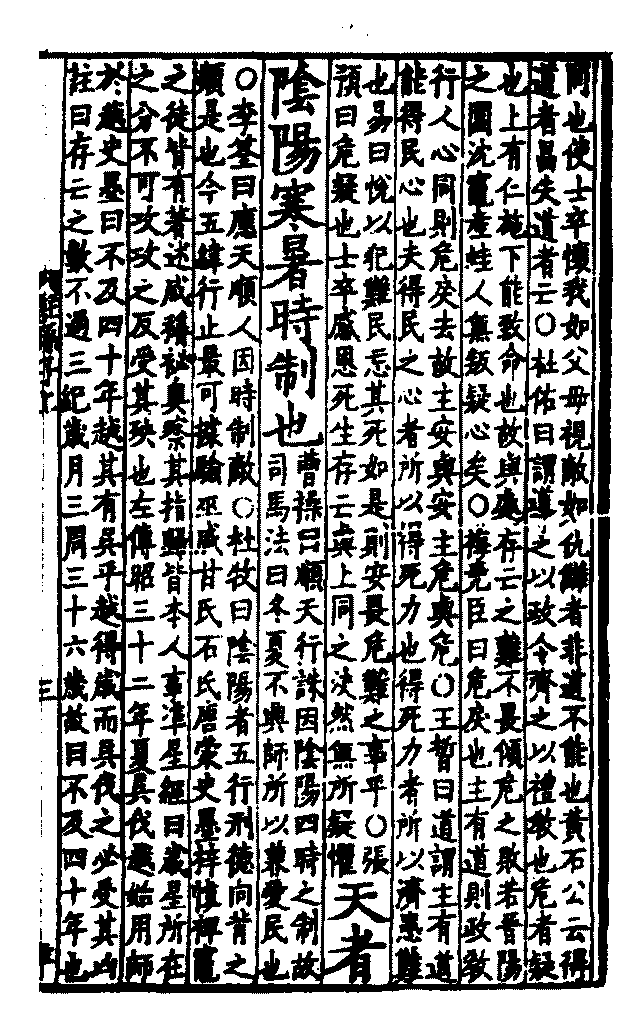 同也使士卒懷我如父母視敵如仇讎者非道不能也黃石公云得
道者昌失道者亡○杜佑曰謂導之以政令齊之以禮教也危者疑
也上有仁施下能致命也故與處存亡之難不畏傾危之敗若晉陽
之圍沈竈產蛙人無叛疑心矣○梅堯臣曰危戾也主有道則政教
行人心同則危戾去故主安與安主危與危○王晳曰道謂主有道
能得民心也夫得民之心者所以得死力也得死力者所以濟患難
也易曰悅以犯難民忘其死如是則安畏危難之事乎○張
預曰危疑也士卒感恩死生存亡與上同之決然無所疑懼
天者
陰陽寒暑時制也
曹操曰順天行誅因陰陽四時之制故
司馬法曰冬夏不興師所以兼愛民也
○李筌曰應天順人因時制敵○杜牧曰陰陽者五行刑德向背之
類是也今五緯行止最可據驗巫咸甘氏石氏唐蒙史墨梓慎裨竈
之徒皆有著述咸稱祕奧察其指歸皆本人事準星經曰歲星所在
之分不可攻攻之反受其殃也左傳昭三十二年夏吳伐越始用師
於越史墨曰不及四十年越其有吳乎越得歲而吳伐之必受其凶
註曰存亡之數不過三紀歲月三周三十六歲故曰不及四十年也
三